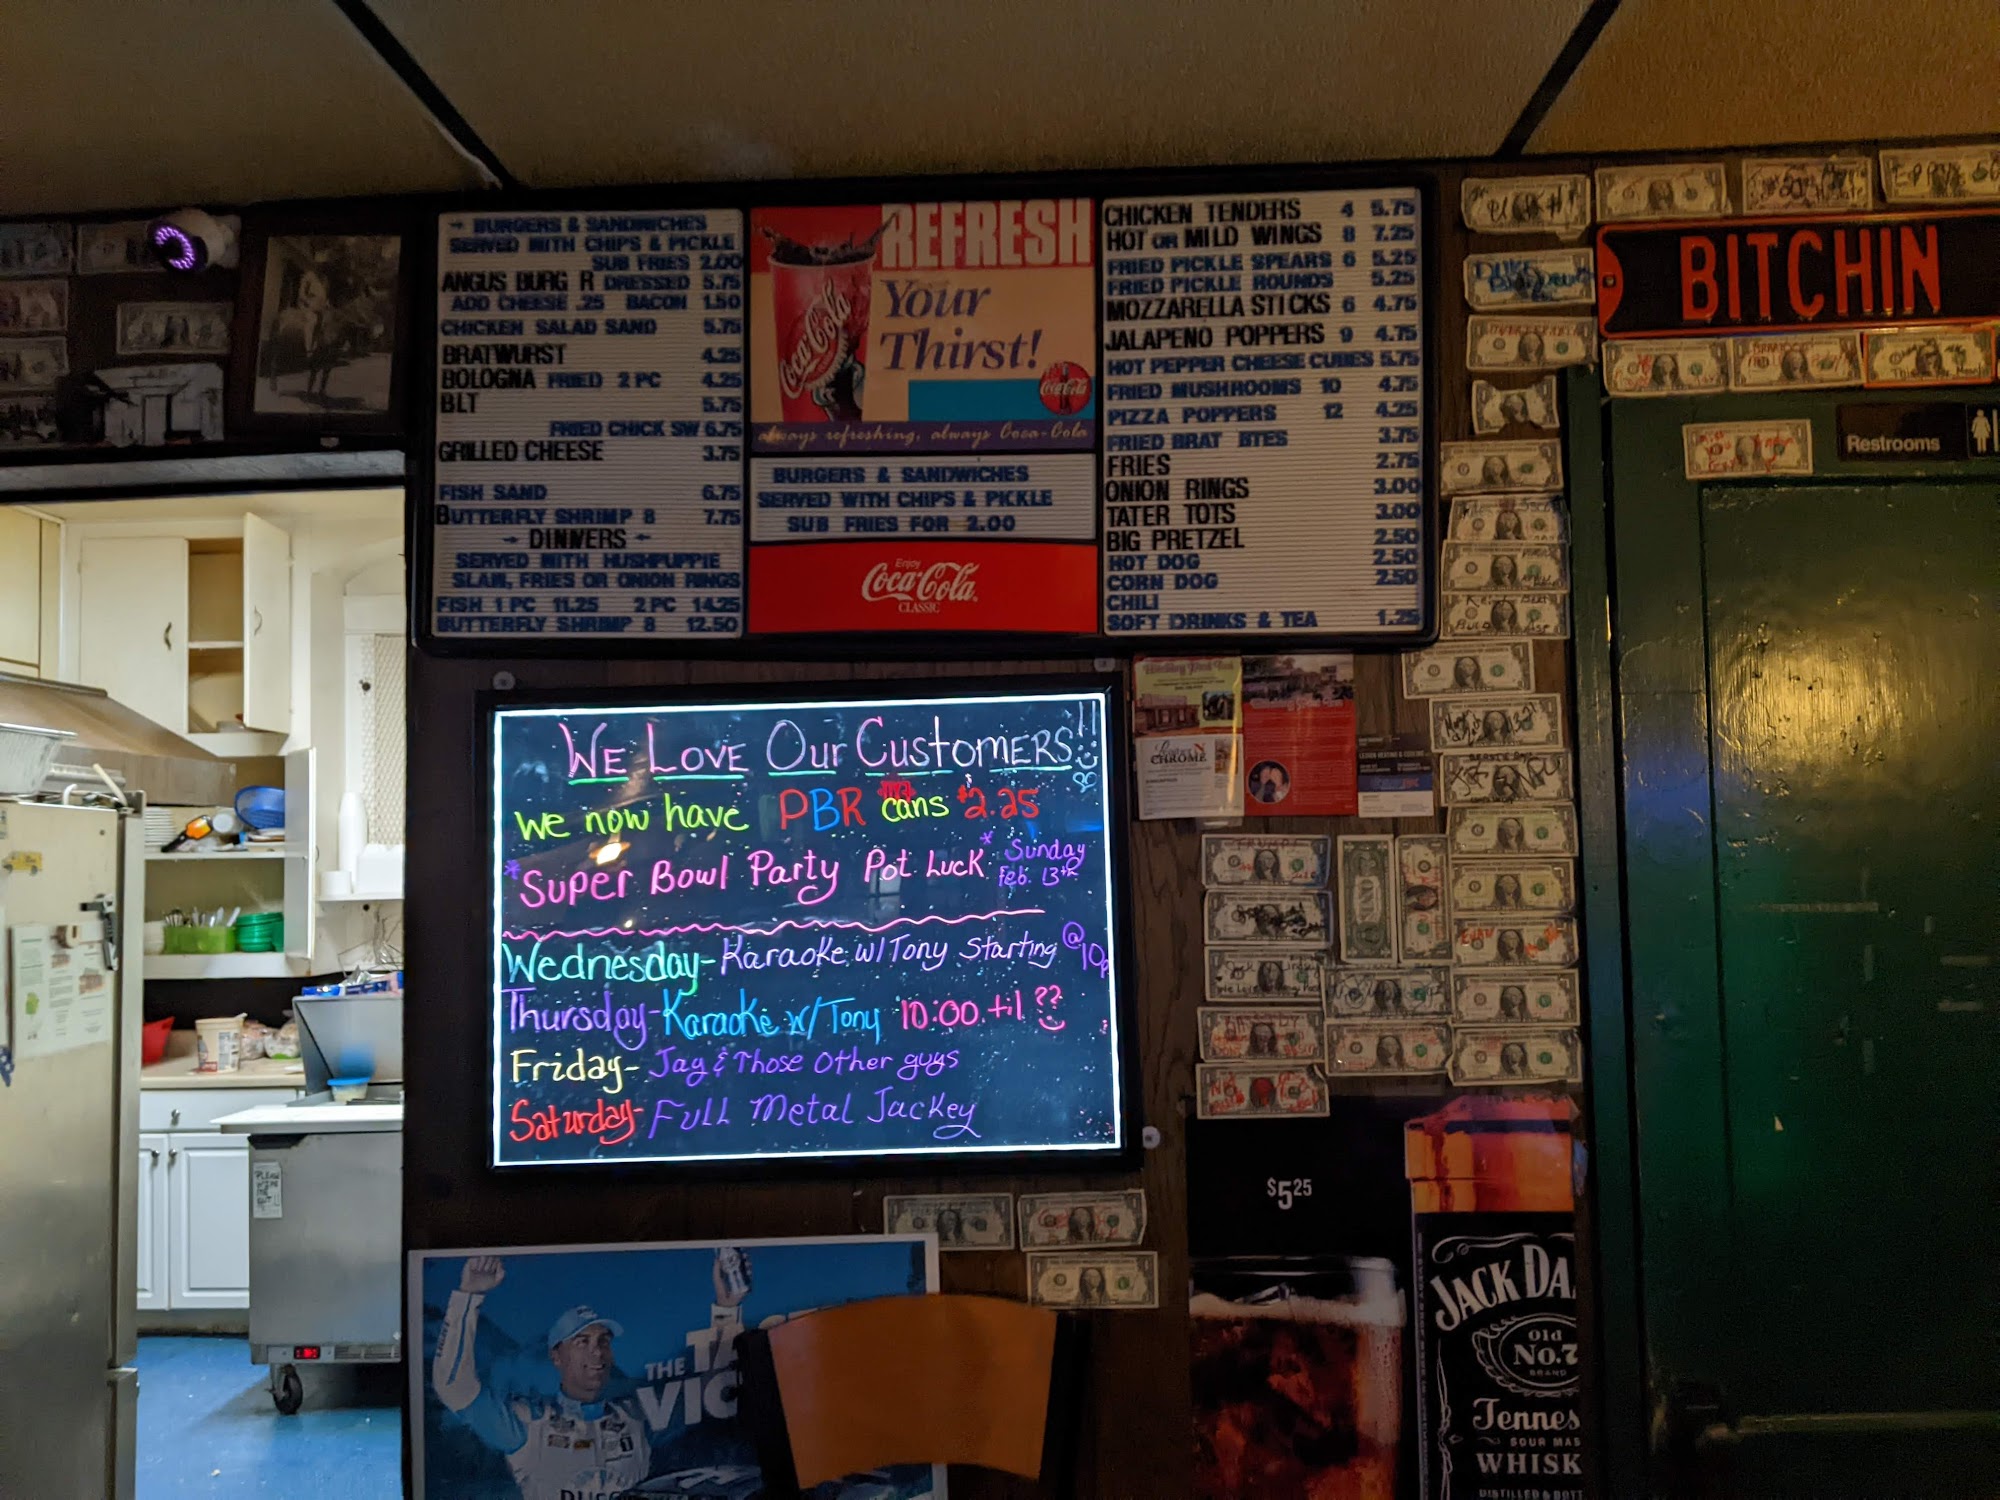 → BURGERS & SANDWICHES
SERVED WITH CHIPS & PICKLE
SUB FRIES 2.00
ANGUS BURG R DRESSED 5.75
ADD CHEESE .25 BACON 1.50
CHICKEN SALAD SAND 5.75
BRATWURST 4.25
BOLOGNA FRIED 2 PC 4.25
BLT 5.75
FRIED CHICK SW 6.75
GRILLED CHEESE 3.75
FISH SAND 6.75
BUTTERFLY SHRIMP 8 7.75
→ DINNERS ←
SERVED WITH HUSHPUPPIE
SLAW, FRIES OR ONION RINGS
FISH 1 PC 11.25 2 PC 14.25
BUTTERFLY SHRIMP 8 12.50
REFRESH
Your
Thirst!
Coca-Cola
Coca-Cola
always refreshing, always Coca-Cola
BURGERS & SANDWICHES
SERVED WITH CHIPS & PICKLE
SUB FRIES FOR 2.00
Enjoy
Coca-Cola
CLASSIC
CHICKEN TENDERS 4 5.75
HOT OR MILD WINGS 8 7.25
FRIED PICKLE SPEARS 6 5.25
FRIED PICKLE ROUNDS 5.25
MOZZARELLA STICKS 6 4.75
JALAPENO POPPERS 9 4.75
HOT PEPPER CHEESE CUBES 5.75
FRIED MUSHROOMS 10 4.75
PIZZA POPPERS 12 4.25
FRIED BRAT BTES 3.75
FRIES 2.75
ONION RINGS 3.00
TATER TOTS 3.00
BIG PRETZEL 2.50
HOT DOG 2.50
CORN DOG 2.50
CHILI
SOFT DRINKS & TEA 1.25
BITCHIN
Restrooms
WE LOVE OUR CUSTOMERS!!
we now have PBR cans $2.25
* Super Bowl Party Pot Luck * Sunday
Feb. 13th
Wednesday- Karaoke w/ Tony Starting @ 10p
Thursday- Karaoke w/ Tony 10:00 til ??
Friday- Jay & Those Other guys
Saturday- Full Metal Jackey
CHROME
$5.25
JACK DA
Old
No.7
BRAND
Tennes
SOUR MAS
WHISK
DISTILLED & BOTT
THE TA
VIC